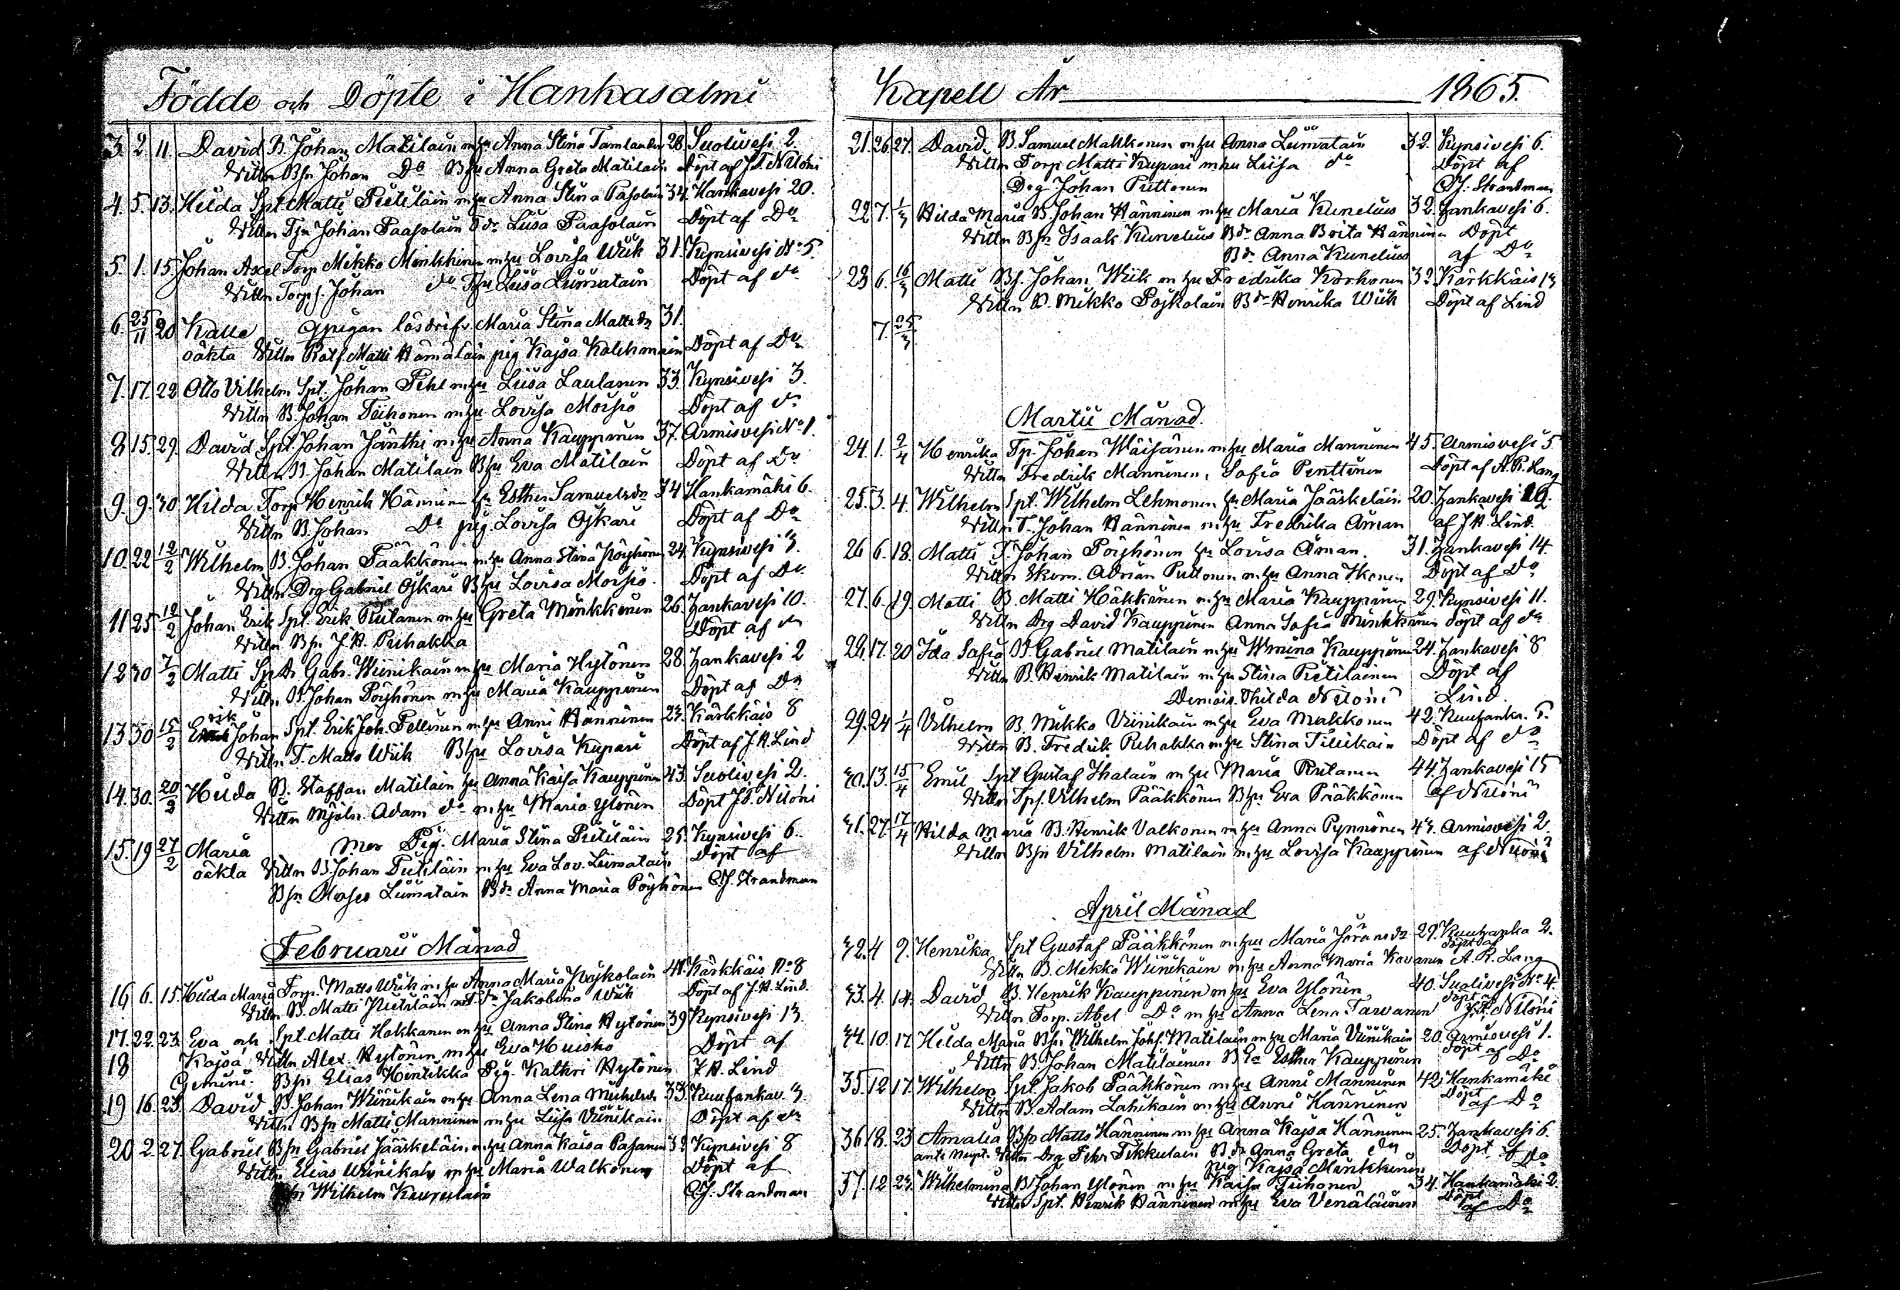 Födde och Döpte i Hankasalmi
3. 2. 11. David B. Johan Matilain m hu Anna Stina 28. Suolivesi 2.
Vittn Bsn Johan Do Bhu Anna Greta Matilain Döpt af J.F. Niloni
4. 5. 13. Hilda Spt. Matti Pietiläin m hu Anna Stina 34. Hankavesi 20.
Vittn Johan Paasolain Do Liisa Paasolain Döpt af Do
5. 1. 15. Johan Axel Torp Mikko Minkkinen m hu Lovisa Wiik 31. Kynsivesi No 5.
Vittn Torps. Johan do Liisa Liimatain Döpt af do
6. 25/11 20 Kalle lösdrif. Maria Stina Mattsdr 31.
oäkta Vittn Matti Hämäläin pig Kajsa Kolehmain Döpt af Do
7. 17. 22 Otto Vilhelm Spt. Johan Pihl m hu Liisa Laulanen 33. Kynsivesi 3.
Vittn B. Johan Tiihonen m hu Lovisa Moisio Döpt af do
8 15. 29. David Spt. Johan Jänthi m hu Anna Kauppinen 37. Armisvesi No 1.
Vittn B. Johan Matilain Bhu Eva Matilain Döpt af Do
9. 9. 30 Hilda Torp Henrik Hänninen hu Esther Samuelsdr 34 Hankamäki 6.
Vittn B. Johan Do pig. Lovisa Ojkari Döpt af Do
10. 22 12/2 Wilhelm B. Johan Pääkkönen m hu Anna Stina Pöyhönen 24. Kynsivesi 3.
Vittn Drg Gabriel Ojkari Bhu Lovisa Moisio. Döpt af Do
11 25 12/2 Johan Erik Spt. Erik Rutanen m hu Greta Minkkinen 26. Hankavesi 10.
Vittn Bsn J.H. Puhakka Döpt af do
12 30 7/2 Matti Gabr. Wiinikain m hu Maria Hytönen 28. Hankavesi 2
Vittn B. Johan Pöyhönen m hu Maria Kauppinen Döpt af Do
13 30 15/2 Erik Johan Spt. Erik Joh. Pellinen m hu Anni Hänninen 23. Kärkkäis 8
Vittn T. Matts Wiik Bhu Lovisa Kupari Döpt af J.H. Lind
14. 30. 20/2 Hilda B. Staffan Matilain hu Anna Kaisa Kauppinen 43. Suolivesi 2.
Vittn Mjöln. Adam do m hu Maria Ylönen Döpt J.F. Niloni
15. 19 27/2 Maria Mor Pig. Maria Stina Pietiläin 25. Kynsivesi 6.
oäkta Vittn B. Johan Pietiläin m hu Eva Lov. Liimatain Döpt af
Bsn Moses Liimatain Bdr Anna Maria Pöyhönen C.J. Strandman
Februarii Månad
16 6. 15. Hilda Maria Torp. Matts Wiik m hu Anna Maria Pojkolain 41. Kärkkäis No 8
Vittn B. Matti Jakobina Wiik Döpt af J.H. Lind.
17. 22. 23. Eva och Spt. Matti Hakkanen m hu Anna Stina Hytönen 39 Kynsivesi 13.
18 Kajsa, Vittn Alex. Hytönen m hu Eva Huisko Döpt af
Gemini. Bsn Elias Hintikka Pig. Kathri Hytönen J.H. Lind
19 16. 23. David B. Johan Wiinikain m hu Anna Lena Michelsdr 33. Kuuhankav. 3.
Vittn Bsn Matti Manninen m hu Liisa Wiinikain Döpt af do
20 2. 27. Gabriel Bsn Gabriel Jääskeläin m hu Anna Kaisa Pasanen 32 Kynsivesi 8
Vittn Elias Wiinikain m hu Maria Walkonen Döpt af
Wilhelm C.J. Strandman
Kapell År 1865.
21. 26. 27. David B. Samuel Makkonen m hu Anna Liimatain 32. Kynsivesi 6.
Vittn Torp Matti Kupari m hu Liisa do Döpt af
Drg Johan Puttonen C.J. Strandman
22 7. 1/3 Hilda Maria B. Johan Hänninen m hu Maria Kunelius 32. Hankavesi 6.
Vittn Bsn Isaak Kunelius Bdr Anna Brita Hänninen Döpt
Bdr Anna Kunelius af Do
23 6. 16/3 Matti Bsn Johan Wiik m hu Fredrika Korhonen 32 Kärkkäis 13
Vittn B. Mikko Pojkolain Bdr Henrika Wiik Döpt af Lind
7. 25/3
Martii Månad.
24. 1. 2/4 Henrika Tp. Johan Wäisänen m hu Maria Manninen 45. Armisvesi 5
Vittn Fredrik Manninen, Sofia Penttinen Döpt af A.R. Lang
25. 3. 4. Wilhelm Spt. Wilhelm Lehmonen hu Maria Jääskeläin 20. Hankavesi
Vittn T. Johan Hänninen m hu Fredrika Åman af J.H. Lind.
26 6. 18. Matti T. Johan Pöyhönen hu Lovisa Åman. 31. Hankavesi 14.
Vittn Adrian Puttonen m hu Anna Ikonen Döpt af Do
27. 6. 19. Matti B. Matti Häkkinen m hu Maria Kauppinen 29. Kynsivesi 11.
Vittn Drg David Kauppinen Anna Sofia Minkkinen döpt af do
28. 17. 20 Ida Sofia B. Gabriel Matilain m hu Wmina Kauppinen 24. Hankavesi 8
Vittn B. Henrik Matilain m hu Stina Pietiläinen Döpt af
Demois. Thilda Niloni Lind
29. 24 1/4 Vilhelm B. Mikko Viinikain m hu Eva Makkonen 42. Kuuhanka. 5.
Vittn B. Fredrik Puhakka m hu Stina Tiiikain Döpt af do
30. 13. 15/4 Emil Spt Gustaf Ihalain m hu Maria Rutanen 44. Hankavesi 15
Vittn Vilhelm Pääkkönen Bhu Eva Pääkkönen af Niloni
31. 27. 17/4 Hilda Maria B. Henrik Valkonen m hu Anna Pynnönen 43. Armisvesi 2.
Vittn Bsn Vilhelm Matilain m hu Lovisa Kauppinen af Niloni
April Månad
32. 4 9. Henrika Spt Gustaf Pääkkönen m hu Maria Göransdr 29. Kuuhanka 2.
Vittn B. Mikko Wiinikain m hu Anna Maria Kavanen döpt af A.R. Lang
33. 4. 14. David B. Henrik Kauppinen m hu Eva Ylönen 40. Suolivesi No 4.
Vittn Torp. Abel Do m hu Anna Lena Tarvanen döpt af J.F. Niloni
34. 10. 17 Hilda Maria Bsn Wilhelm Johs. Matilain m hu Maria Viinikain 20. Armisvesi 1.
Vittn B. Johan Matilainen Bdr Esther Kauppinen döpt af Do
35. 12 17. Wilhelm Spt Jakob Pääkkönen m hu Anni Manninen 42. Hankamäki
Vittn B. Adam Lahikain m hu Anni Hänninen Döpt af Do
36 18. 23 Amalia Bsn Matts Hänninen m hu Anna Kajsa Hänninen 25. Hankavesi 6.
ante nupt. Vittn Drg Pehr Tikkulain Bdr Anna Greta do Döpt af Do
pig Kajsa Minkkinen
37. 12 23. Wilhelmina B. Johan Ylönen m hu Kaisa Tiihonen 34. Hankamäki 2.
Vittn Spt. Henrik Hänninen m hu Eva Venäläinen Döpt af Do